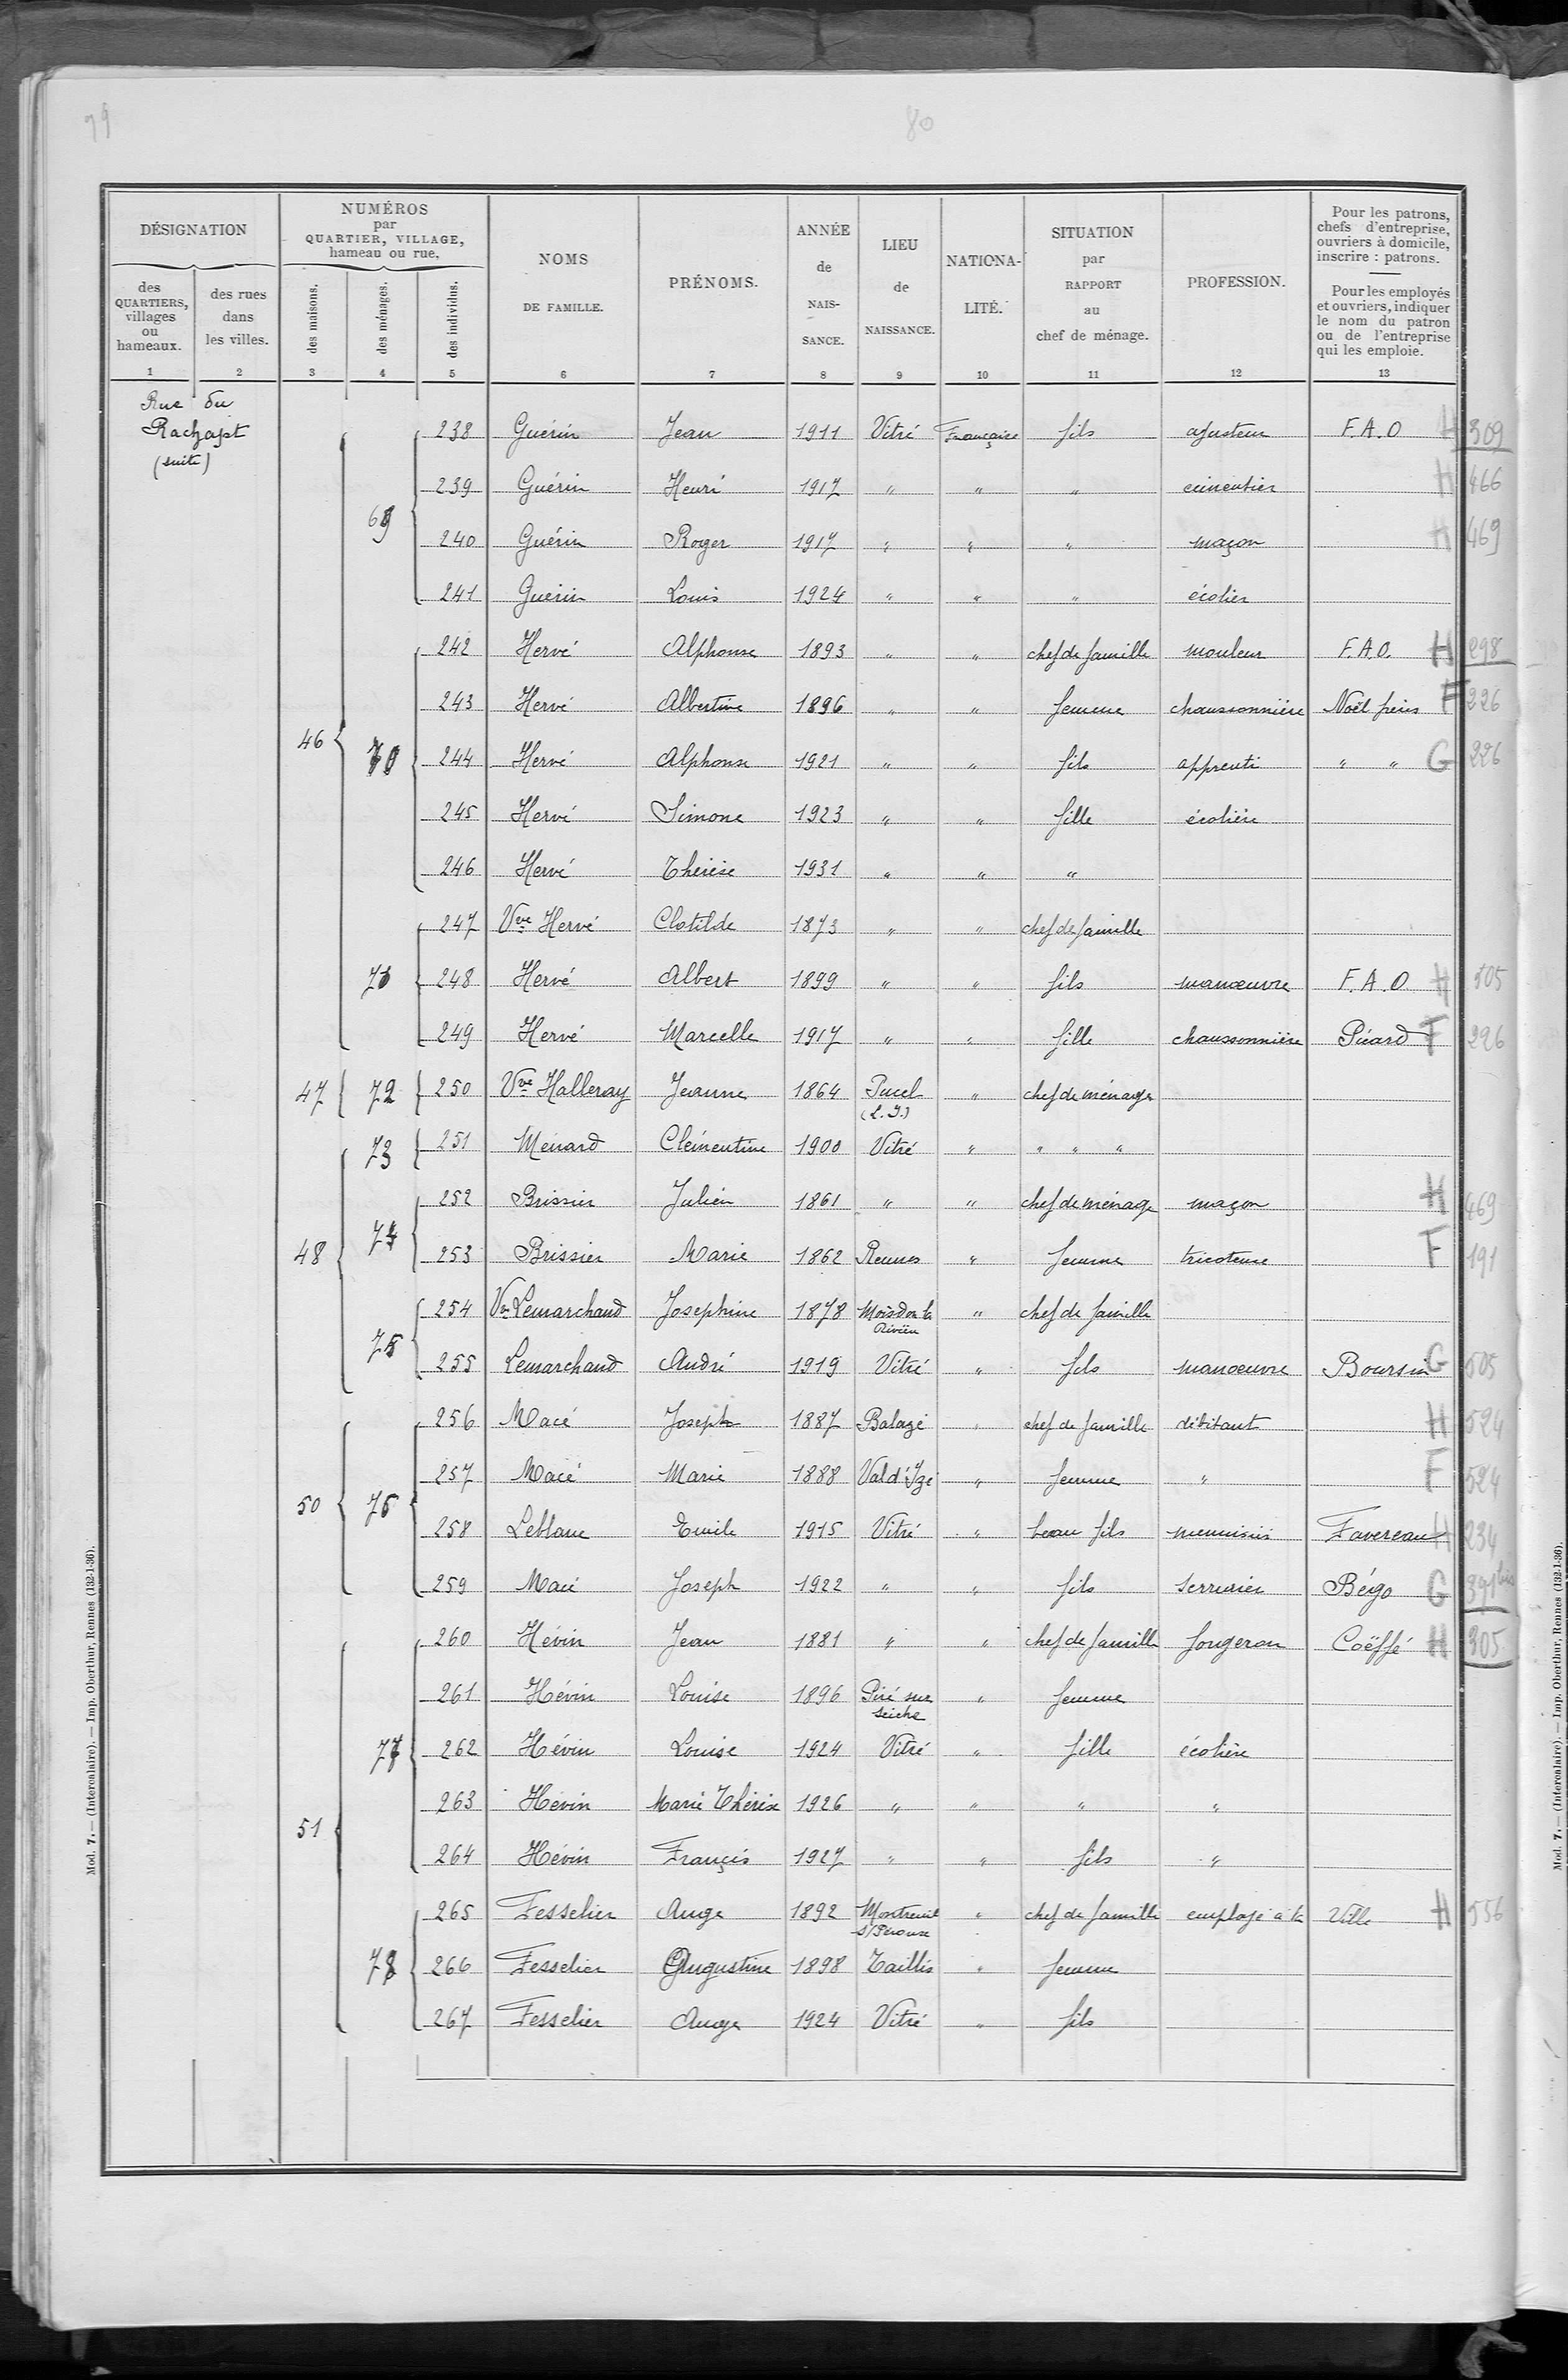 79 80
DÉSIGNATION
NUMÉROS
par
QUARTIER, VILLAGE,
hameau ou rue.
des
QUARTIERS,
villages
ou
hameaux.
des rues
dans
les villes.
des maisons.
des ménages.
des individus.
NOMS
DE FAMILLE.
PRÉNOMS.
ANNÉE
de
NAIS-
SANCE.
LIEU
de
NAISSANCE.
NATIONA-
LITÉ.
SITUATION
par
RAPPORT
au
chef de ménage.
PROFESSION.
Pour les patrons,
chefs d'entreprise,
ouvriers à domicile,
inscrire : patrons.
Pour les employés
et ouvriers, indiquer
le nom du patron
ou de l'entreprise
qui les emploie.
1 2 3 4 5 6 7 8 9 10 11 12 13
Rue du
Rachapt
(suite)
238 Guérin Jean 1911 Vitré Française fils ajusteur F.A.O H 309
239 Guérin Henri 1917 " " " cimentier H 466
69
240 Guérin Roger 1917 " " " maçon H 469
241 Guérin Louis 1924 " " " écolier
242 Hervé Alphonse 1893 " " chef de famille mouleur F.A.O. H 298
243 Hervé Albertine 1896 " " femme chaussonnière Noël frères F 226
46 70 244 Hervé Alphonse 1921 " " fils apprenti " " G 226
245 Hervé Simone 1923 " " fille écolière
246 Hervé Thérèse 1931 " " "
247 Vve Hervé Clotilde 1873 " " chef de famille
71 248 Hervé Albert 1899 " " fils manœuvre F.A.O H 505
249 Hervé Marcelle 1917 " " fille chaussonnière Picard F 226
47 72 250 Vve Halleray Jeanne 1864 Pucel (L.I.) " chef de ménage
73 251 Ménard Clémentine 1900 Vitré " " " "
252 Brissier Julien 1861 " " chef de ménage maçon H 469
48 74 253 Brissier Marie 1862 Rennes " femme tricoteuse F 191
254 Vve Lemarchand Josephine 1878 Moisdon la Rivière " chef de famille
75 255 Lemarchand André 1919 Vitré " fils manœuvre Boursin G 505
256 Macé Joseph 1887 Balazé " chef de famille débitant H 524
257 Macé Marie 1888 Val d'Izé " femme " F 524
50 76
258 Leblanc Emile 1915 Vitré " beau fils menuisier Favereau H 234
259 Macé Joseph 1922 " " fils serrurier Bégo G 391 bis
260 Hévin Jean 1881 " " chef de famille forgeron Coëffé H 305
261 Hévin Louise 1896 Piré sur Seiche " femme
77 262 Hévin Louise 1924 Vitré " fille écolière
263 Hévin Marie Thérèse 1926 " " " "
51
264 Hévin Francis 1927 " " fils "
265 Fesselier Ange 1892 Montreuil s/Pérouse " chef de famille employé à la Ville H 556
78 266 Fesselier Augustine 1898 Taillis " femme
267 Fesselier Ange 1924 Vitré " fils
Mod. 7. — (Intercalaire). — Imp. Oberthur, Rennes (132-1-36).
Mod. 7. — (Intercalaire). — Imp. Oberthur, Rennes (132-1-36).